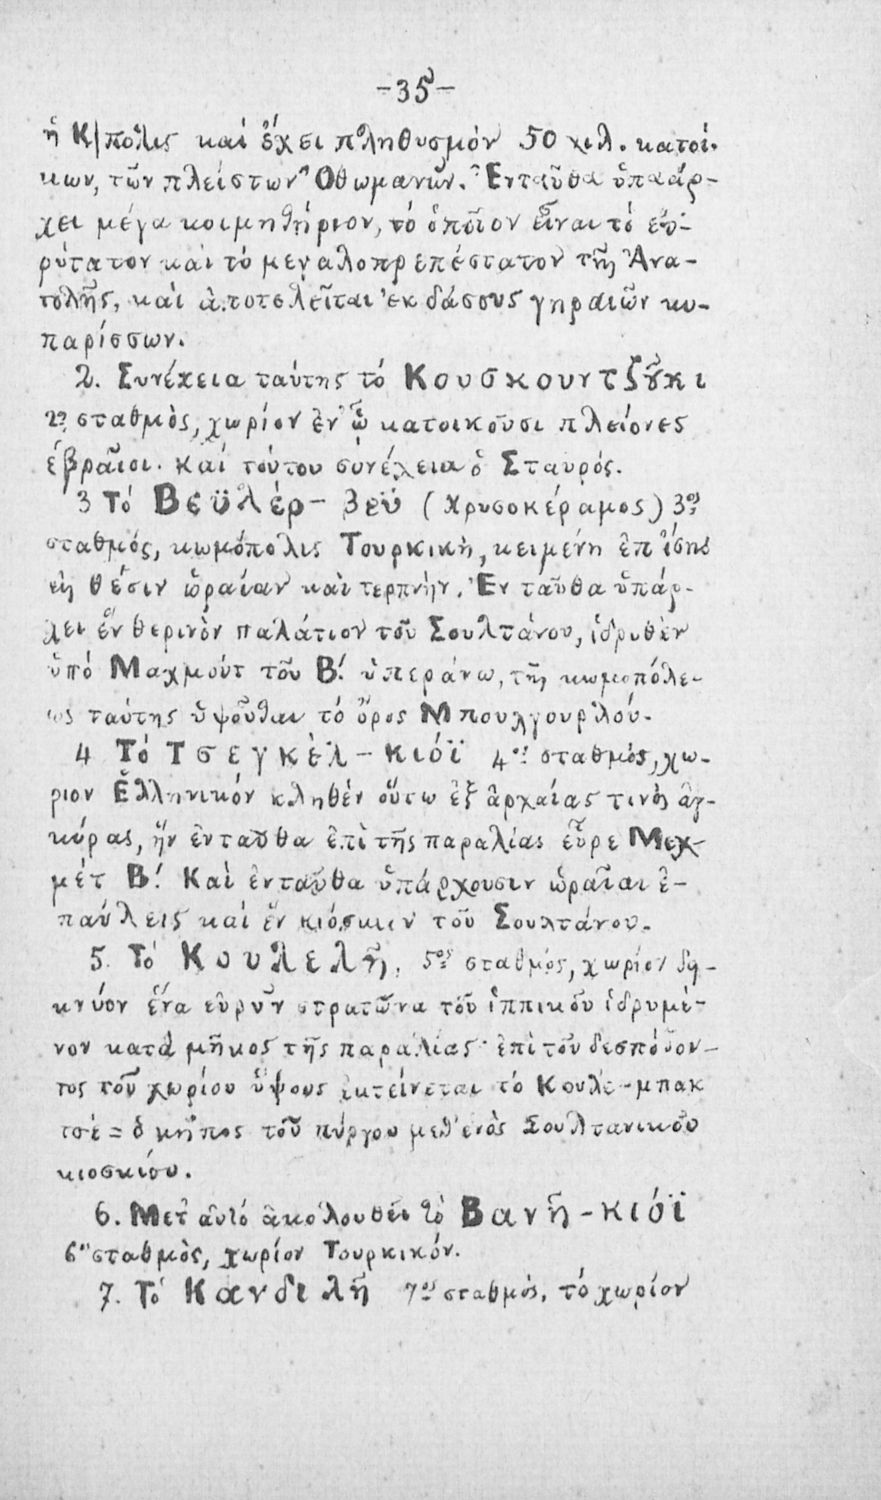 -35-
ἡ Κ/πολις καί ἔχει πληθυσμόν 50 χιλ. κατοί-
κων, τῶν πλείστων Ὀθωμανῶν. Ἐνταῦθα ὑπαάρ-
χει μέγα κοιμητήριον, τό ὁποῖον εἶναι τό εὐ-
ρύτατον καί τό μεγαλοπρεπέστατον τῆς Ἀνα-
τολῆς, καί ἀποτελεῖται ἐκ δάσους γηραιῶν κυ-
παρίσσων.
2. Συνέχεια ταύτης τό Κουσκουντζοῦκι
2ος σταθμός, χωρίον ἐν ᾧ κατοικοῦσι πλείονες
ἑβραῖοι. Καί τούτου συνέχεια ὁ Σταυρός.
3 Τό Βεϋλέρ-βεΰ (Χρυσοκέραμος) 3ος
σταθμός, κωμόπολις Τουρκική, κειμένη ἐπίσης
εἰς θέσιν ὡραίαν καί τερπνήν. Ἐνταῦθα ὑπάρ-
χει ἕν θερινόν παλάτιον τοῦ Σουλτάνου, ἱδρυθέν
ὑπό Μαχμούτ τοῦ Β! ὑπεράνω, τῆς κωμοπόλε-
ως ταύτης ὑψοῦται τό ὄρος Μπουλγουρλού.
4 Τό Τσεγκέλ-κιόϊ 4ος σταθμός, χω-
ριον Ἑλληνικόν κληθέν οὕτω ἐξ ἀρχαίας τινός ἀγ-
κύρας, ἥν ἐνταῦθα ἐπί τῆς παραλίας εὗρε Μεχ-
μέτ Β! Καί ἐνταῦθα ὑπάρχουσιν ὡραῖαι ἐ-
παύλεις καί ἕν κιόσκιον τοῦ Σουλτάνου.
5. Τό Κουλελῆ, 5ος σταθμός, χωρίον δη-
κνύον ἕνα εὐρύν στρατῶνα τοῦ ἱππικοῦ ἱδρυμέ-
νον κατά μῆκος τῆς παραλίας· ἐπί τοῦ δεσπόζον-
τος τοῦ χωρίου ὕψους ἐκτείνεται τό Κουλέ-μπακ
τσέ = ὁ κῆπος τοῦ πύργου μεθ' ἑνός Σουλτανικοῦ
κιοσκίου.
6. Μετ αὐτό ἀκολουθεῖ τό Βανῆ-κιόϊ
6ος σταθμός, χωρίον Τουρκικόν.
7. Τό Κανδιλῆ 7ος σταθμός, τό χωρίον